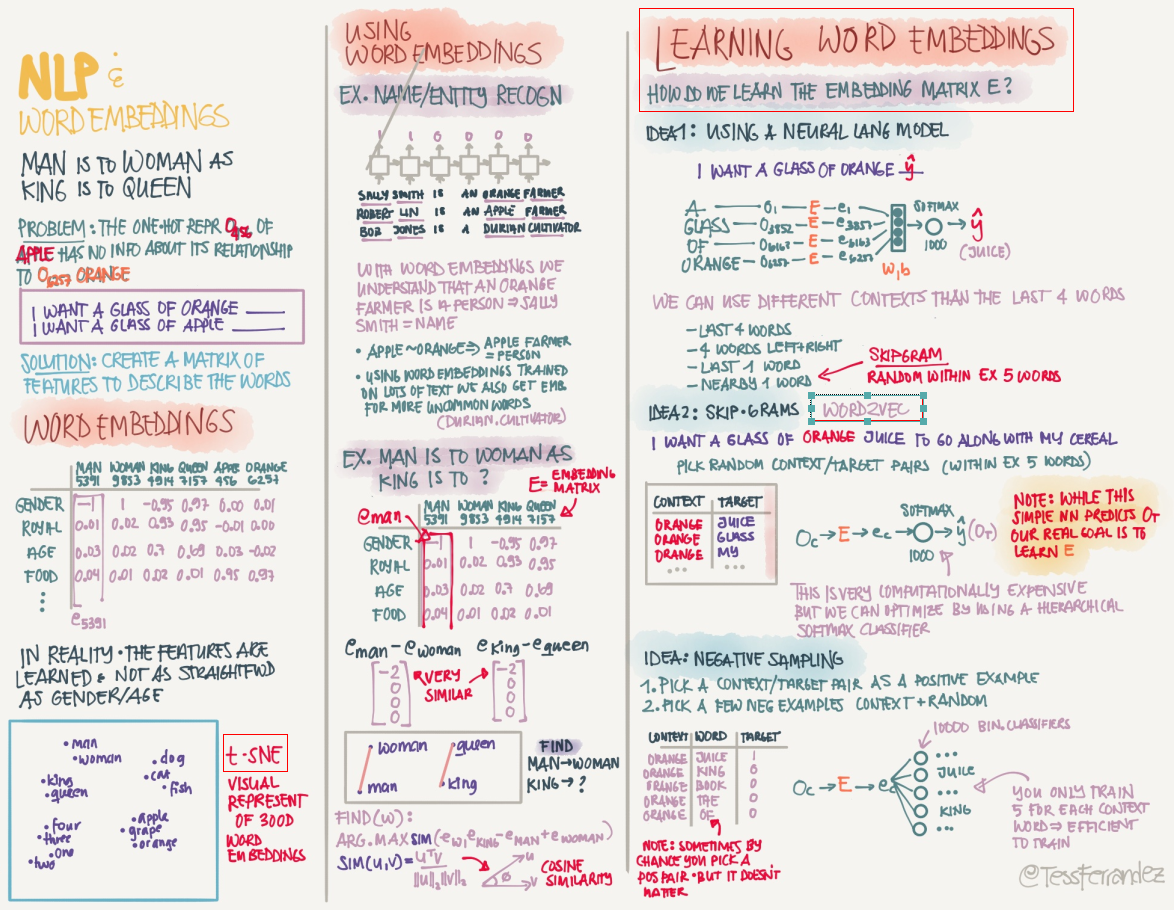 NLP &
WORD EMBEDDINGS
MAN IS TO WOMAN AS
KING IS TO QUEEN
PROBLEM: THE ONE-HOT REPR O456 OF
APPLE HAS NO INFO ABOUT ITS RELATIONSHIP
TO O6257 ORANGE
I WANT A GLASS OF ORANGE ____
I WANT A GLASS OF APPLE ____
SOLUTION: CREATE A MATRIX OF
FEATURES TO DESCRIBE THE WORDS
WORD EMBEDDINGS
MAN WOMAN KING QUEEN APPLE ORANGE
5391 9853 4914 7157 456 6257
GENDER -1 1 -0.95 0.97 0.00 0.01
ROYAL 0.01 0.02 0.93 0.95 -0.01 0.00
AGE 0.03 0.02 0.7 0.69 0.03 -0.02
FOOD 0.04 0.01 0.02 0.01 0.95 0.97
e5391
IN REALITY • THE FEATURES ARE
LEARNED & NOT AS STRAIGHTFWD
AS GENDER/AGE
man
woman
dog
cat
fish
king
queen
four
three
one
two
apple
grape
orange
t-SNE
VISUAL
REPRESENT
OF 300D
WORD
EMBEDDINGS
USING
WORD EMBEDDINGS
EX. NAME/ENTITY RECOGN
1 1 0 0 0 0
SALLY SMITH IS AN ORANGE FARMER
ROBERT LIN IS AN APPLE FARMER
BOB JONES IS A DURIAN CULTIVATOR
WITH WORD EMBEDDINGS WE
UNDERSTAND THAT AN ORANGE
FARMER IS A PERSON ⇒ SALLY
SMITH = NAME
• APPLE ~ ORANGE ⇒ APPLE FARMER
= PERSON
• USING WORD EMBEDDINGS TRAINED
ON LOTS OF TEXT WE ALSO GET EMB
FOR MORE UNCOMMON WORDS
(DURIAN, CULTIVATOR)
EX. MAN IS TO WOMAN AS
KING IS TO ?
E = EMBEDDING
MATRIX
eman
MAN WOMAN KING QUEEN
5391 9853 4914 7157
GENDER -1 1 -0.95 0.97
ROYAL 0.01 0.02 0.93 0.95
AGE 0.03 0.02 0.7 0.69
FOOD 0.04 0.01 0.02 0.01
eman - ewoman eking - equeen
-2 -2
0 0
0 0
0 0
VERY
SIMILAR
woman queen
man king
FIND
MAN → WOMAN
KING → ?
FIND(W):
ARG.MAX SIM(ew, eKING - eMAN + eWOMAN)
SIM(U,V) = UTV
||U||2 ||V||2
U
Ø
V
COSINE
SIMILARITY
LEARNING WORD EMBEDDINGS
HOW DO WE LEARN THE EMBEDDING MATRIX E?
IDEA1: USING A NEURAL LANG MODEL
I WANT A GLASS OF ORANGE ŷ
A — O1 — E — e1
GLASS — O3852 — E — e3852
OF — O6163 — E — e6163
ORANGE — O6257 — E — e6257
W,b
SOFTMAX
1000
ŷ
(JUICE)
WE CAN USE DIFFERENT CONTEXTS THAN THE LAST 4 WORDS
- LAST 4 WORDS
- 4 WORDS LEFT+RIGHT
- LAST 1 WORD
- NEARBY 1 WORD
SKIPGRAM
RANDOM WITHIN EX 5 WORDS
IDEA2: SKIP-GRAMS WORD2VEC
I WANT A GLASS OF ORANGE JUICE TO GO ALONG WITH MY CEREAL
PICK RANDOM CONTEXT/TARGET PAIRS (WITHIN EX 5 WORDS)
CONTEXT TARGET
ORANGE JUICE
ORANGE GLASS
ORANGE MY
... ...
Oc → E → ec → ŷ (OT)
SOFTMAX
1000
NOTE: WHILE THIS
SIMPLE NN PREDICTS OT
OUR REAL GOAL IS TO
LEARN E
THIS IS VERY COMPUTATIONALLY EXPENSIVE
BUT WE CAN OPTIMIZE BY USING A HIERARCHICAL
SOFTMAX CLASSIFIER
IDEA: NEGATIVE SAMPLING
1. PICK A CONTEXT/TARGET PAIR AS A POSITIVE EXAMPLE
2. PICK A FEW NEG EXAMPLES CONTEXT + RANDOM
CONTEXT WORD TARGET
ORANGE JUICE 1
ORANGE KING 0
ORANGE BOOK 0
ORANGE THE 0
ORANGE OF 0
NOTE: SOMETIMES BY
CHANCE YOU PICK A
POS PAIR • BUT IT DOESN'T
MATTER
10000 BIN. CLASSIFIERS
Oc → E → ec
...
JUICE
KING
...
YOU ONLY TRAIN
5 FOR EACH CONTEXT
WORD ⇒ EFFICIENT
TO TRAIN
@TessFerrandez